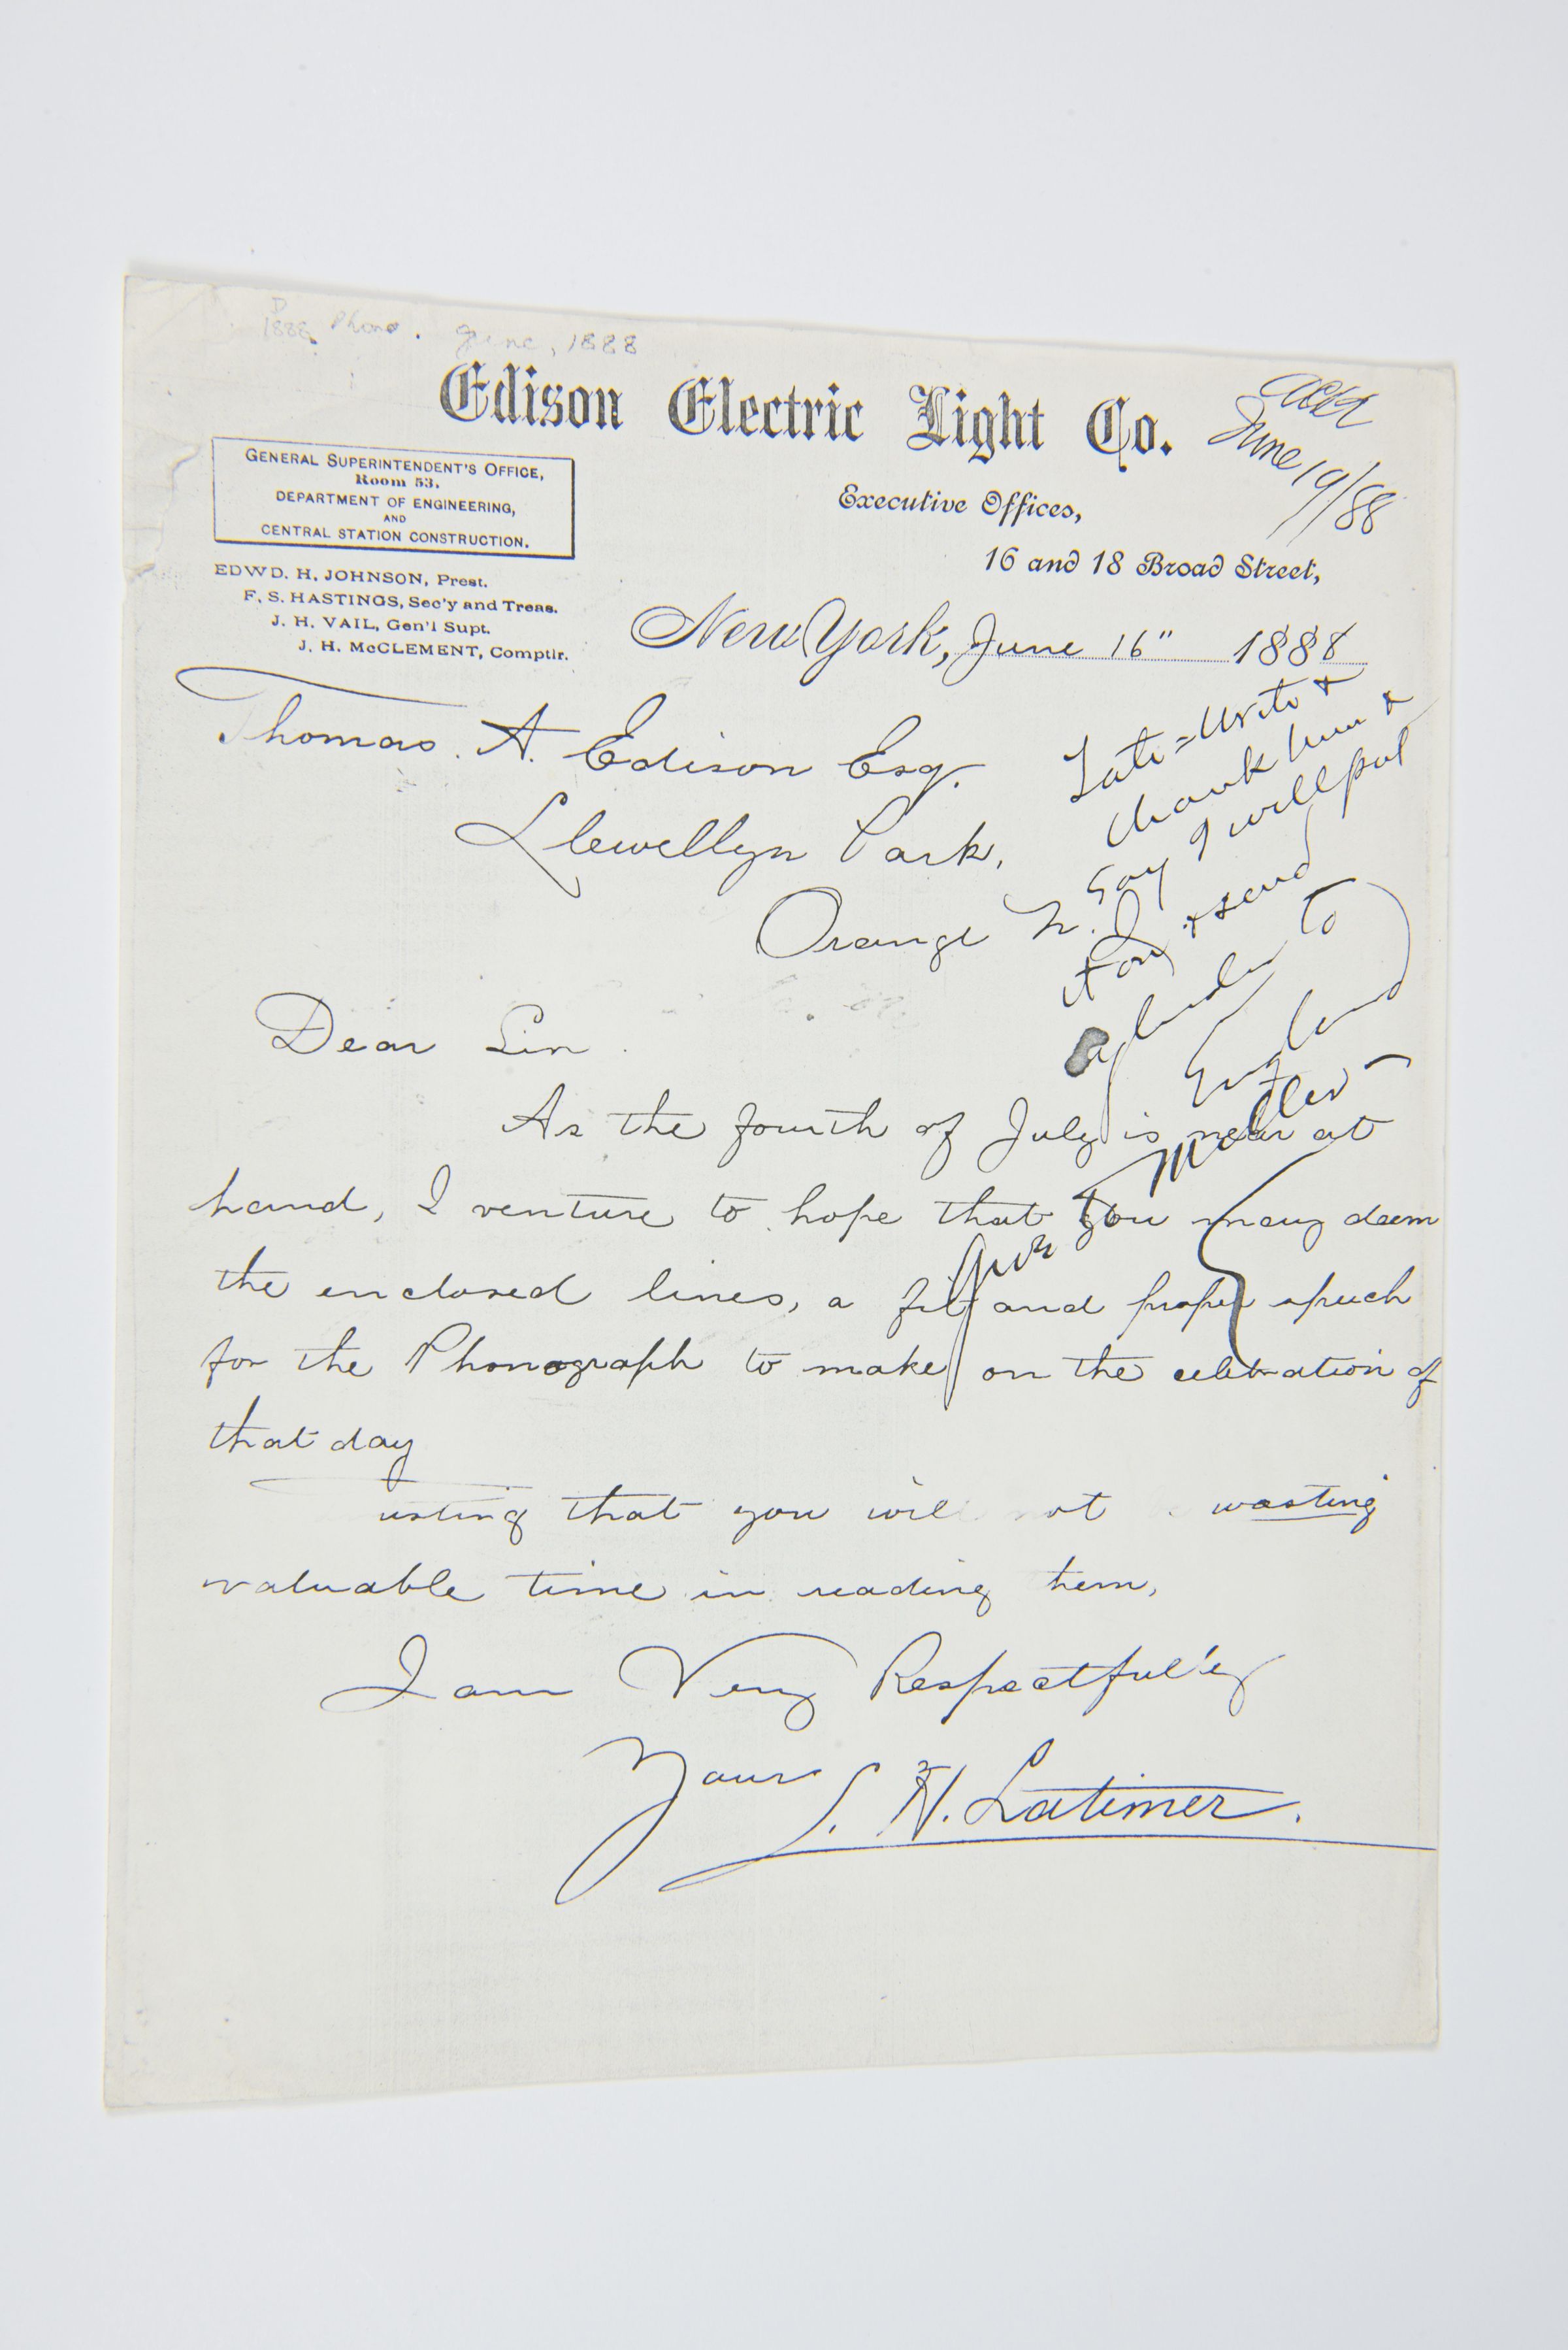 1888 Phono. June, 1888
Edison Electric Light Co.
GENERAL SUPERINTENDENT'S OFFICE,
Room 53,
DEPARTMENT OF ENGINEERING,
AND
CENTRAL STATION CONSTRUCTION.
June 19/88
Executive Offices,
16 and 18 Broad Street,
EDWD. H. JOHNSON, Prest.
F. S. HASTINGS, Sec'y and Treas.
J. H. VAIL, Gen'l Supt.
J. H. McCLEMENT, Comptlr.
New York, June 16" 1888
Thomas. A. Edison Esq.
Llewellyn Park,
Orange N. J.
Tate = Write &
thank him &
say I will put
it on & send
cylinder to
England
Dear Sir.
As the fourth of July is near at
hand, I venture to hope that you may deem
the enclosed lines, a fit and proper speech
for the Phonograph to make on the celebration of
that day
usting that you will not wasting
valuable time in reading them,
I am Very Respectfully
Yours L. H. Latimer.